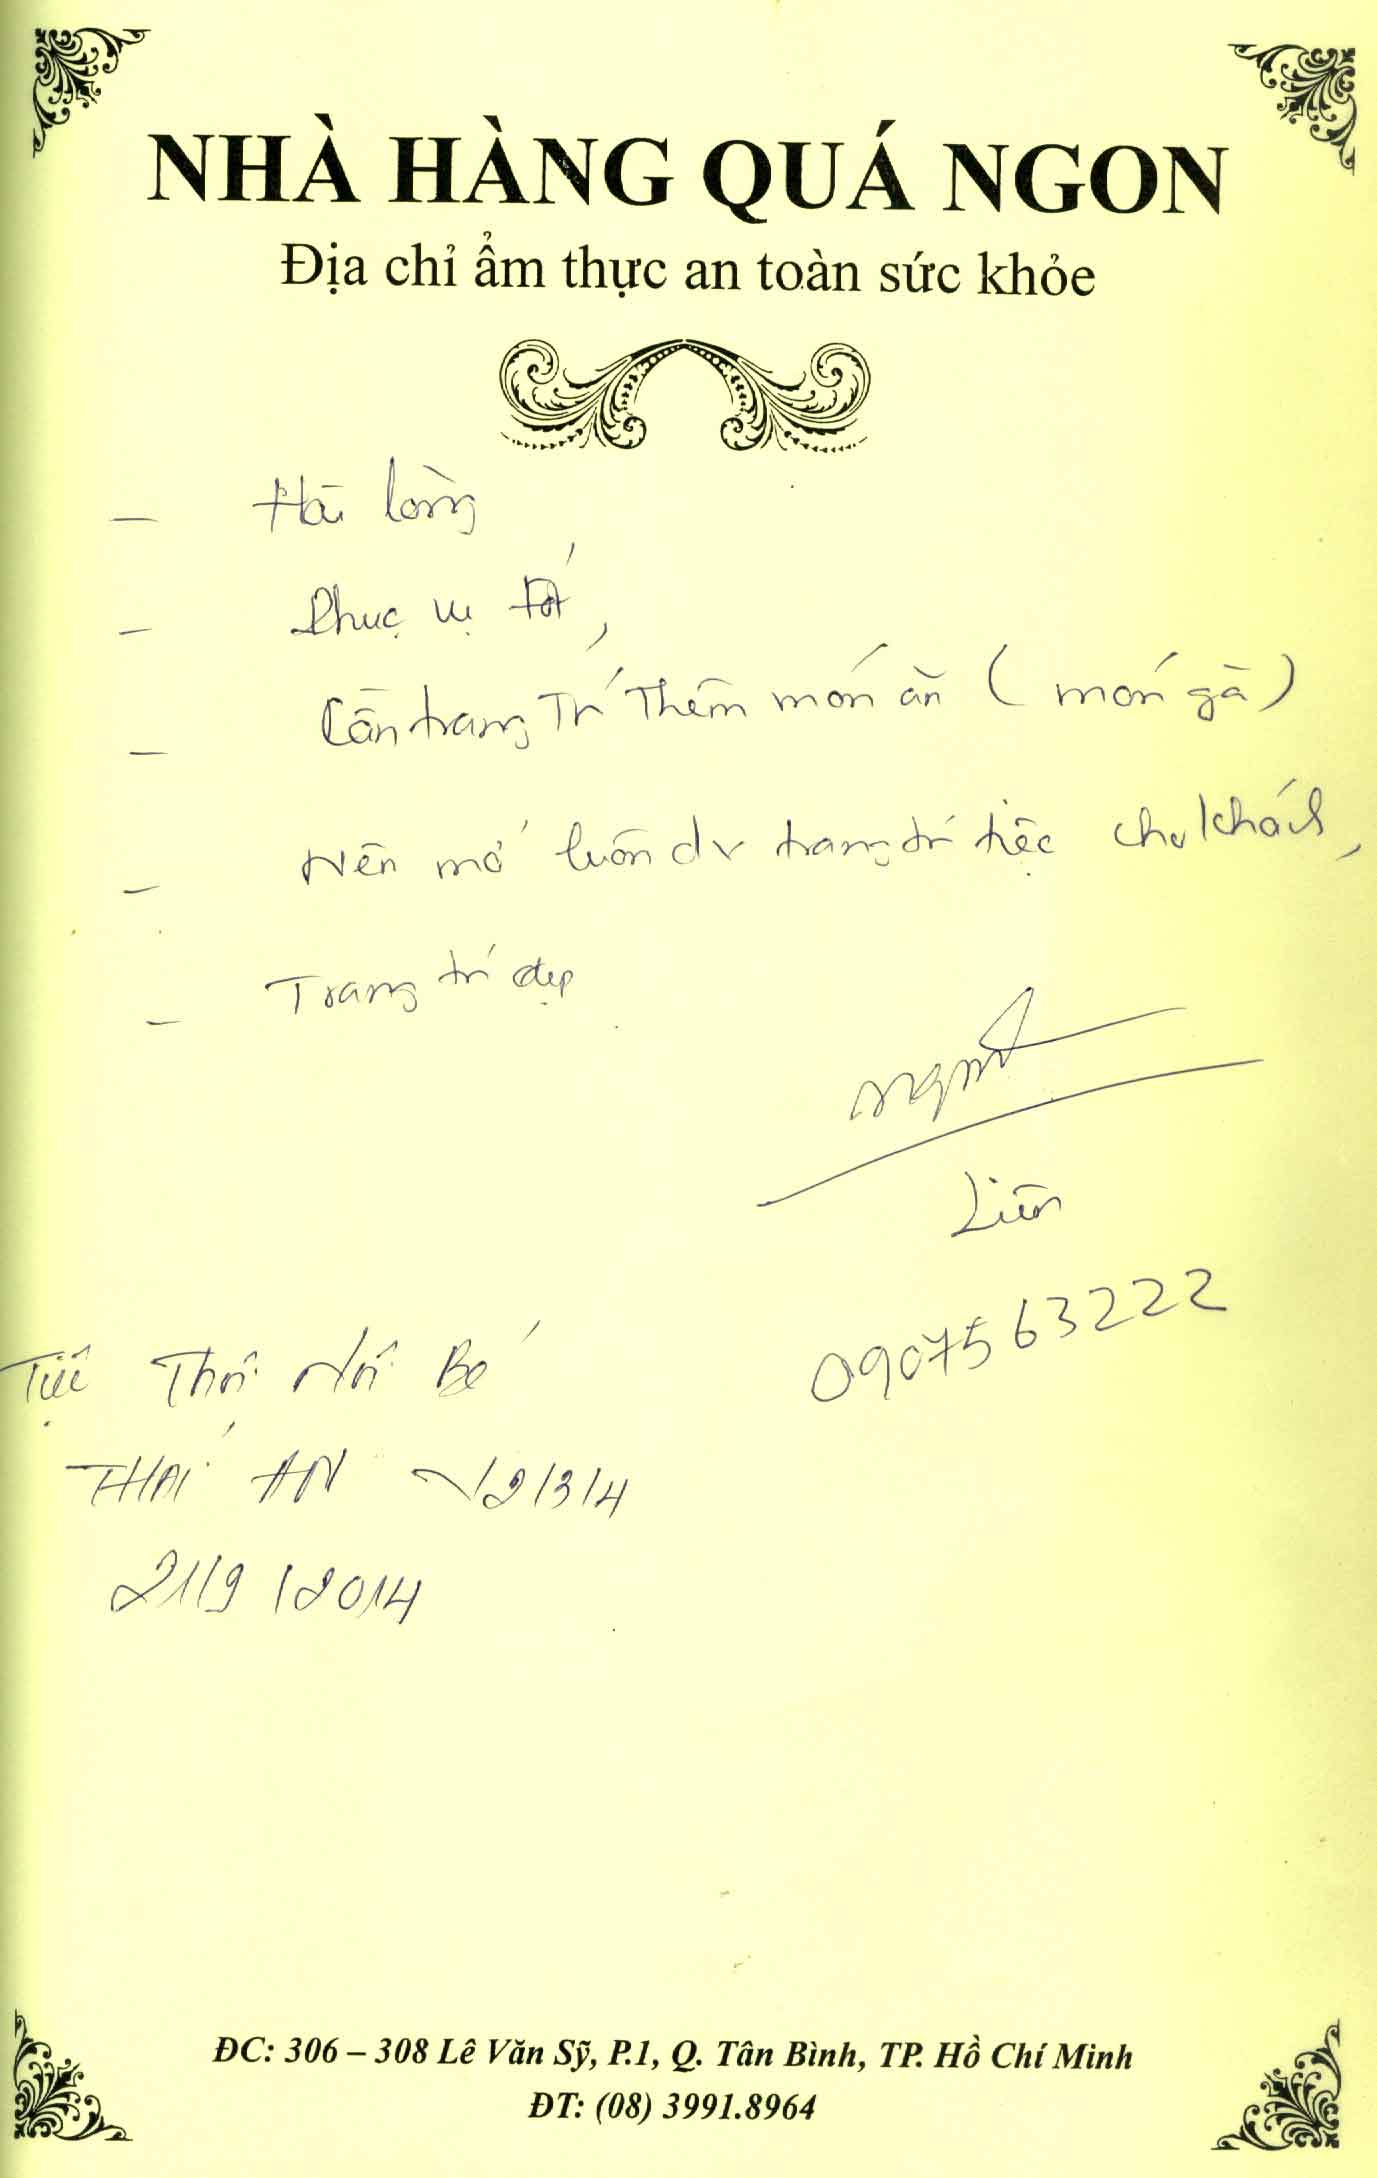 NHÀ HÀNG QUÁ NGON
Địa chỉ ẩm thực an toàn sức khỏe
- Hài lòng
- Phục vụ tốt,
- Cần trang trí thêm món ăn (món gà)
- Nên mở luôn dv trang trí tiệc cho khách,
- Trang trí đẹp
Liên
0907563222
Tiệc Thôi Nôi Bé
THÁI AN 1/2/3/4
21/9/2014
ĐC: 306 – 308 Lê Văn Sỹ, P.1, Q. Tân Bình, TP. Hồ Chí Minh
ĐT: (08) 3991.8964